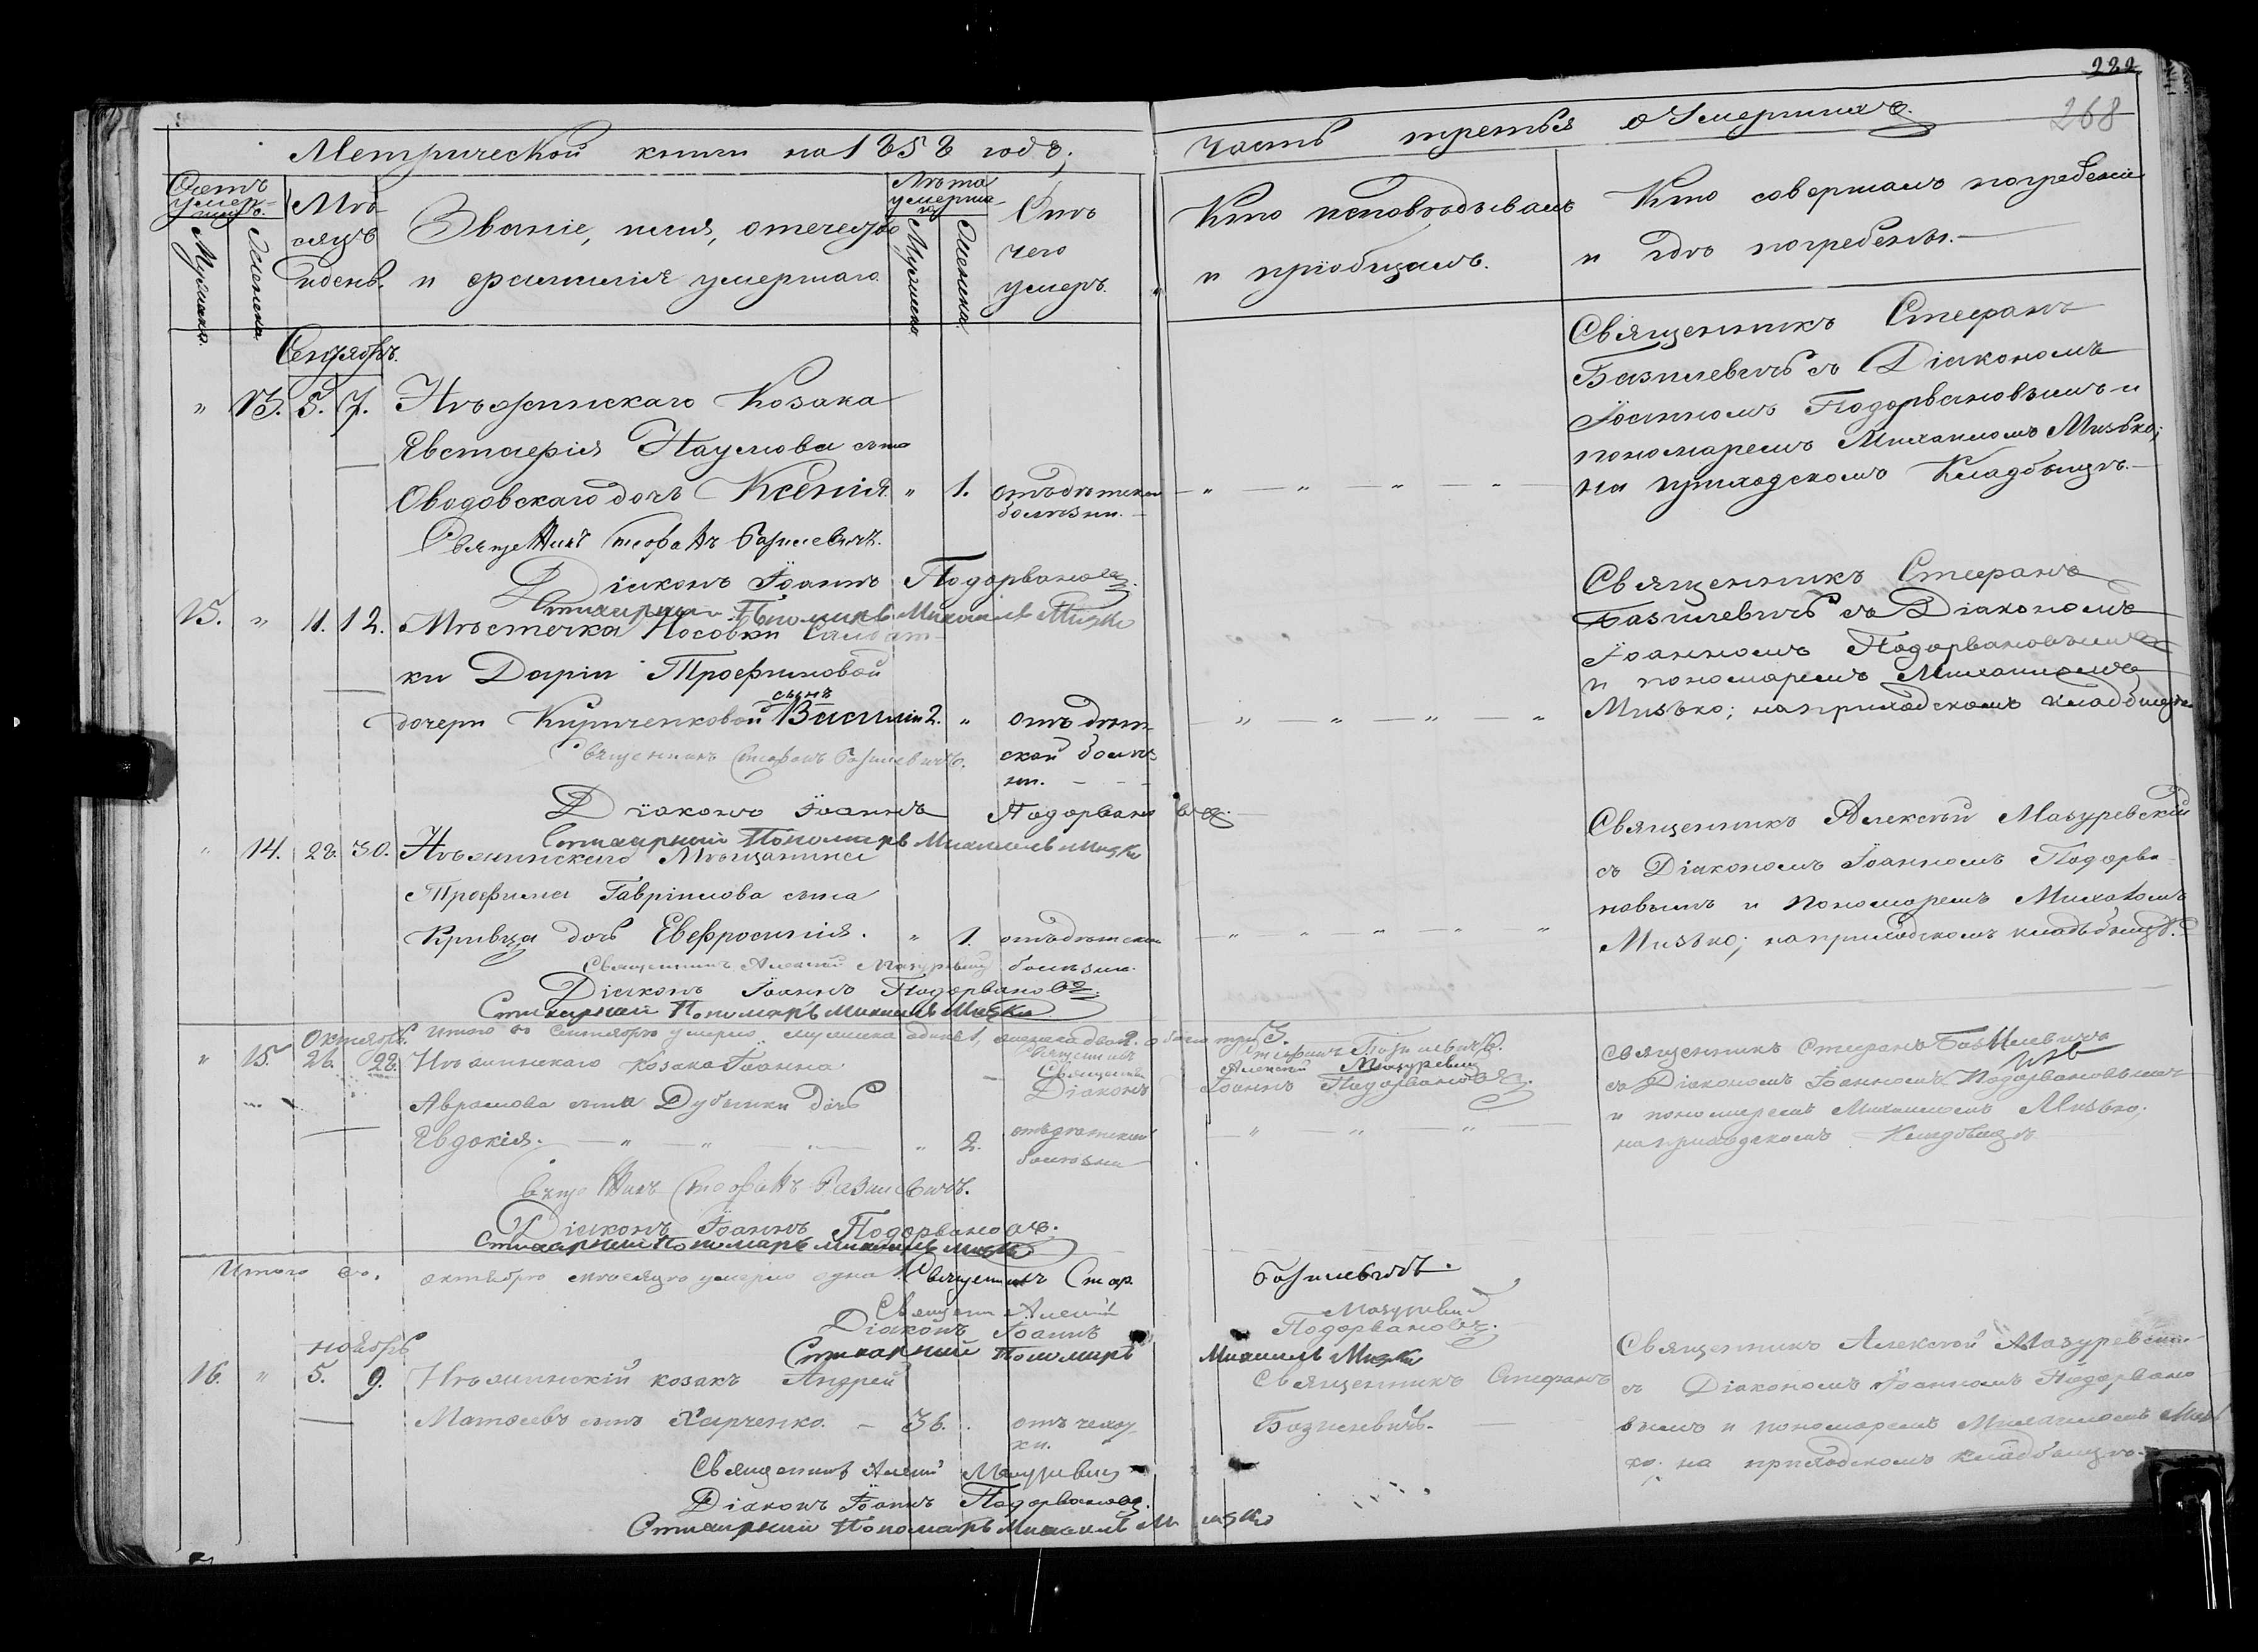 222
268
Метрической книги на 1858 годъ,
Часть третья о Умершихъ
Счетъ умершихъ.
Мужеска.
Женска.
Мѣсяцъ и день.
Званіе, имя, отечество
и фамилія умершаго.
Лѣта умершаго
Мужеска
Женска.
Отъ
чего
умеръ.
Кто исповѣдывалъ
и пріобщалъ.
Кто совершалъ погребеніе
и гдѣ погребены.
Сентябрь.
" 13. 5. 7. Нѣжинскаго Козака
Евстафія Наумова сына
Сводовскаго дочь Ксенія. " 1. отъ дѣтской
болѣзни.
Священникъ Стефанъ
Базилевичъ съ Діакономъ
Іоанномъ Подорвановымъ и
пономаремъ Михаиломъ Мизько;
на приходскомъ Кладбищѣ.
Священникъ Стефанъ Базилевичъ.
Діаконъ Іоаннъ Подорвановъ.
Стихарный Пономарь Михаилъ Мизко
15. " 11. 12. Мѣстечка Носовки Салдат-
ки Даріи Трофимовой
дочери Кириченковой сынъ Василій 2. " отъ дѣт-
ской болѣз-
ни.
Священникъ Стефанъ
Базилевичъ съ Діакономъ
Іоанномъ Подорвановымъ
и пономаремъ Михаиломъ
Мизько; на приходскомъ кладбищѣ
Священникъ Стефанъ Базилевичъ.
Діаконъ Іоаннъ Подорвановъ.
Стихарный Пономарь Михаилъ Мизко
" 14. 28. 30. Нѣжинскаго Мѣщанина
Трофима Гавріилова сына
Кривца дочь Евфросинія. " 1. отъ дѣтской
болѣзни.
Священникъ Алексѣй Мазуревскій
съ Діакономъ Іоанномъ Подорва-
новымъ и Пономаремъ Михаиломъ
Мизько; на приходскомъ кладбищѣ.
Священникъ Алексѣй Мазуревскій
Діаконъ Іоаннъ Подорвановъ.
Стихарный Пономарь Михаилъ Мизко
Итого въ Сентябрѣ умерло мужеска одинъ 1, женска двѣ 2. обоего три 3.
Священникъ Стефанъ Базилевичъ.
Священникъ Алексѣй Мазуревскій
Діаконъ Іоаннъ Подорвановъ.
Октябрь.
" 15. 26. 28. Нѣжинскаго козака Іоанна
Аврамова сына Дубинки дочь
Евдокія. " 2. отъ дѣтской
болѣзни
Священникъ Стефанъ Базилевичъ
съ Діакономъ Іоанномъ Подорвановымъ
и пономаремъ Михаиломъ Мизько;
на приходскомъ Кладбищѣ
Священникъ Стефанъ Базилевичъ.
Діаконъ Іоаннъ Подорвановъ.
Стихарный Пономарь Михаилъ Мизко
Итого въ октябрѣ мѣсяцѣ умерло одна 1. Священникъ Стеф. Базилевичъ.
Священ Алексѣй Мазуревскій
Діаконъ Іоаннъ Подорвановъ.
Стихарный Пономарь Михаилъ Мизко
ноябрь
16. " 5. 9. Нѣжинскій козакъ Андрей
Матѳеевъ сынъ Харченко. 36. отъ чахот-
ки.
Священникъ Стефанъ
Базилевичъ.
Священникъ Алексѣй Мазуревскій
съ Діакономъ Іоанномъ Подорвано
вымъ и пономаремъ Михаиломъ Мизь
ко; на приходскомъ кладбищѣ.
Священникъ Алексѣй Мазуревскій
Діаконъ Іоаннъ Подорвановъ.
Стихарный Пономарь Михаилъ Мизко